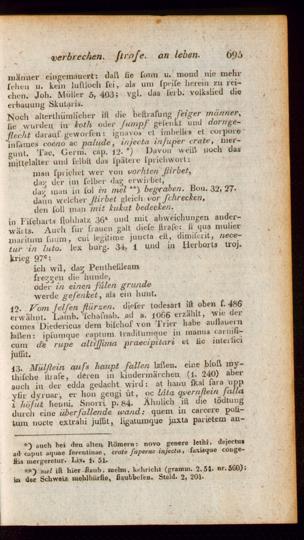 verbrechen. ſtrafe. an leben. 695
männer eingemauert: daß ſie ſonn u. mond nie mehr
ſehen u. kein luftloch ſei, als um ſpeiſe herein zu rei-
chen. Joh. Müller 5, 403; vgl. das ſerb. volkslied die
erbauung Skutaris.
Noch alterthümlicher iſt die beſtrafung feiger männer,
ſie wurden in koth oder ſumpf geſenkt und dornge-
flecht darauf geworfen: ignavos et imbelles et corpore
infames coeno ac palude, injecta inſuper crate, mer-
gunt. Tac. Germ. cap. 12. *) Davon weiß noch das
mittelalter und ſelbſt das ſpätere ſprichwort:
man ſprichet wer von vorhten ſtirbet,
daz der im ſelber daz erwirbet,
daz man in ſol in mel **) begraben. Bon. 32, 27.
dann welcher ſtirbet gleich vor ſchrecken,
den ſoll man mit kukat bedecken.
in Fiſcharts flohhatz 36ᵃ und mit abweichungen ander-
wärts. Auch für frauen galt dieſe ſtrafe: ſi qua mulier
maritum ſuum, cui legitime juncta eſt, dimiſerit, nece-
tur in luto. lex burg. 34, 1 und in Herborts troj.
krieg 97ᵃ:
ich wil, daz Pentheſileam
frezzen die hunde,
oder in einen fûlen grunde
werde geſenket, als ein hunt.
12. Vom felſen ſtürzen. dieſer todesart iſt oben ſ. 486
erwähnt. Lamb. ſchafnab. ad a. 1066 erzählt, wie der
comes Diedericus dem biſchof von Trier habe auflauern
laßen: ipſumque captum traditumque in manus carnifi-
cum de rupe altiſſima praecipitari et ſic interfici
juſſit.
13. Mülſtein aufs haupt fallen laßen. eine bloß my-
thiſche ſtrafe, deren in kindermärchen (1. 240) aber
auch in der edda gedacht wird: at hann ſkal fara upp
yfir dyrnar, er hon gengi ût, oc lâta qvernſtein falla
î höfut henni. Snorri p. 84. Ähnlich iſt die tödtung
durch eine überfallende wand: quem in carcere poſi-
tum nocte extrahi juſſit, ligatumque juxta parietem an-
*) auch bei den alten Römern: novo genere lethi, dejectus
ad caput aquae ferentinae, crate ſuperne injecta, ſaxisque conge-
ſtis mergeretur. Liv. 1. 51.
**) mel iſt hier ſtaub, melm, kehricht (gramm. 2. 51. nr. 560);
in der Schweiz mehlbürſte, ſtaubbeſen. Stald. 2, 204.